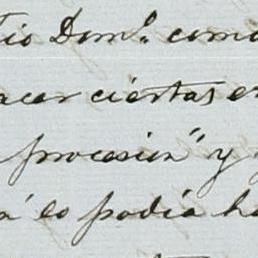 Tio Dom.º como
acer ciertas e
procesion" y
á lo podia ha